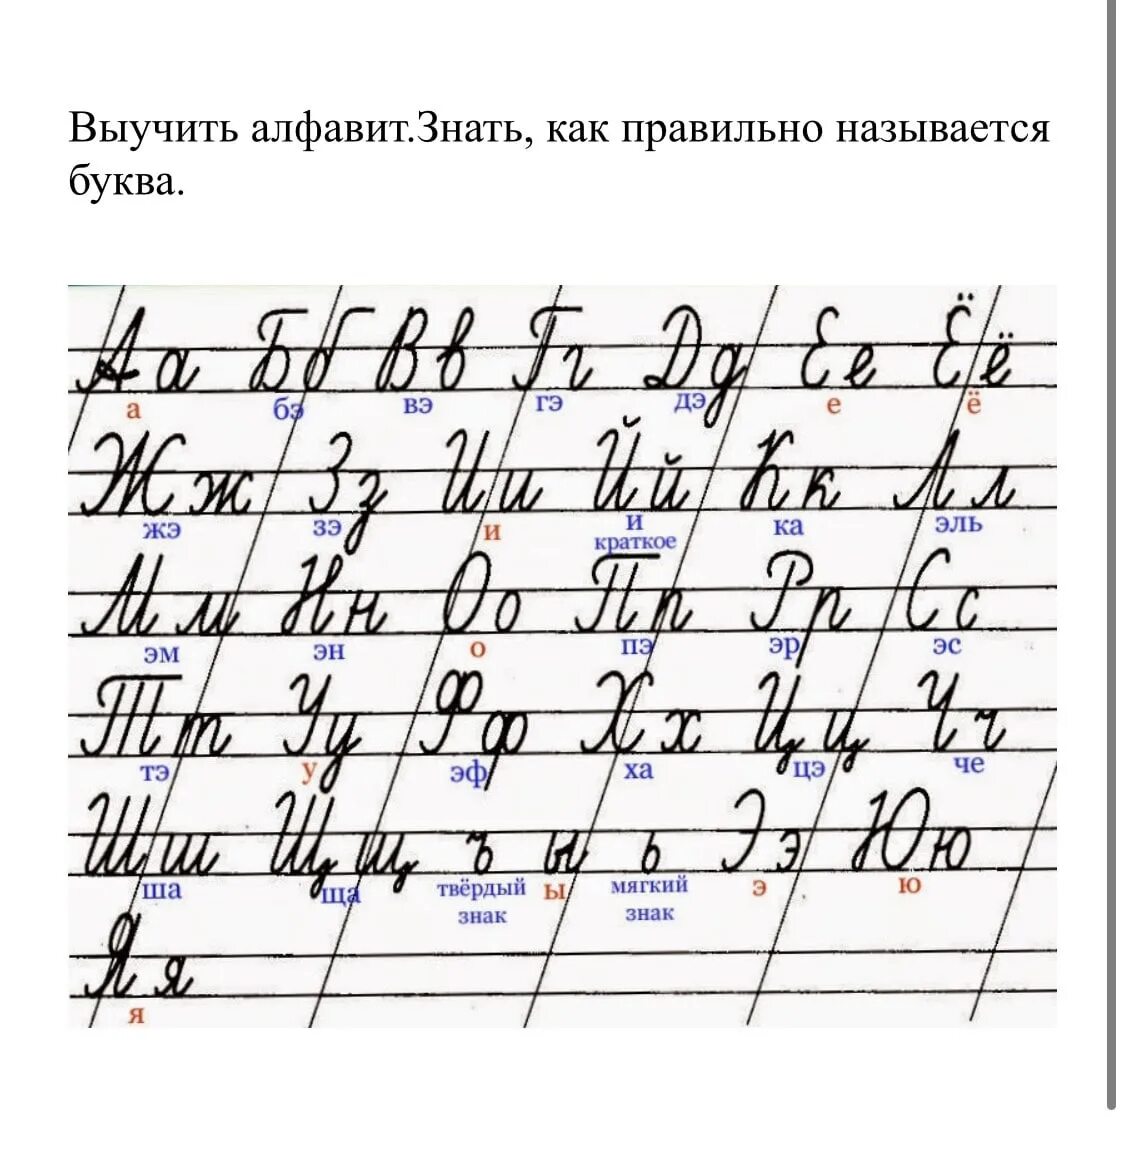 Выучить алфавит.Знать, как правильно называется
буква.
А а Б б В в Г г Д д Е е Ё ё
а бэ вэ гэ дэ е ё
Ж ж З з И и Й й К к Л л
жэ зэ и и краткое ка эль
М м Н н О о П п Р р С с
эм эн о пэ эр эс
Т т У у Ф ф Х х Ц ц Ч ч
тэ у эф ха цэ че
Ш ш Щ щ ъ ы ь Э э Ю ю
ша ща твёрдый знак ы мягкий знак э ю
Я я
я